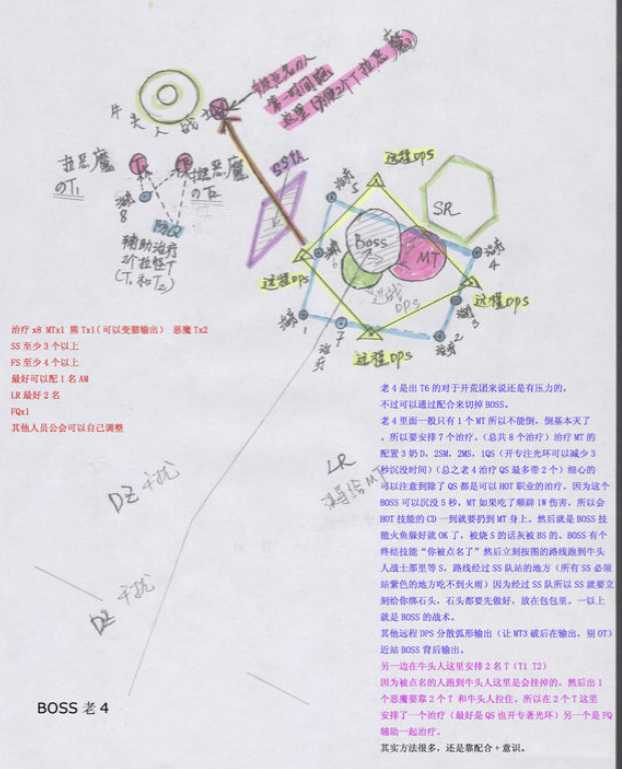 牛头人战士
拉恶魔
のT₁
拉恶魔
のT₂
治疗
8
防Q
辅助治疗
2个拉怪T
(T₁和T₂)
SS队
远程DPS
SR
治疗
5
Boss
MT
治疗
4
远程DPS
近战
DPS
远程DPS
治疗
3
治疗
1
治疗
7
治疗
2
远程DPS
治疗 x8 MTx1 熊 Tx1(可以变猫输出) 恶魔 Tx2
SS 至少 3 个以上
FS 至少 4 个以上
最好可以配 1 名 AM
LR 最好 2 名
FQx1
其他人员公会可以自己调整
老 4 是出 T6 的对于开荒团来说还是有压力的，
不过可以通过配合来切掉 BOSS。
老 4 里面一般只有 1 个 MT 所以不能倒，倒基本灭了
。所以要安排 7 个治疗，（总共 8 个治疗）治疗 MT 的
配置 3 奶 D，2SM，2MS，1QS（开专注光环可以减少 3
秒沉没时间）（总之老 4 治疗 QS 最多带 2 个）细心的
可以注意到除了 QS 都是可以 HOT 职业的治疗。因为这个
BOSS 可以沉没 5 秒，MT 如果吃了顺辟 1W 伤害，所以会
HOT 技能的 CD 一到就要扔到 MT 身上。然后就是 BOSS 技
能火鱼躲好就 OK 了，被烧 S 的话灰被 BS 的。BOSS 有个
终结技能“你被点名了”然后立刻按图的路线跑到牛头
人战士那里等 S，路线经过 SS 队站的地方（所有 SS 必须
站紫色的地方吃不到火雨）因为经过 SS 队所以 SS 就要立
刻给你绑石头，石头都要先做好，放在包包里。一以上
就是 BOSS 的战术。
其他远程 DPS 分散弧形输出（让 MT3 破后在输出，别 OT）
近站 BOSS 背后输出。
另一边在牛头人这里安排 2 名 T（T1 T2）
因为被点名的人跑到牛头人这里是会挂掉的。然后出 1
个恶魔要靠 2 个 T 和牛头人拉住。所以在 2 个 T 这里
安排了一个治疗（最好是 QS 也开专著光环）另一个是 FQ
辅助一起治疗。
其实方法很多，还是靠配合＋意识。
LR
误导给MT
DZ 干扰
DZ 干扰
BOSS 老 4